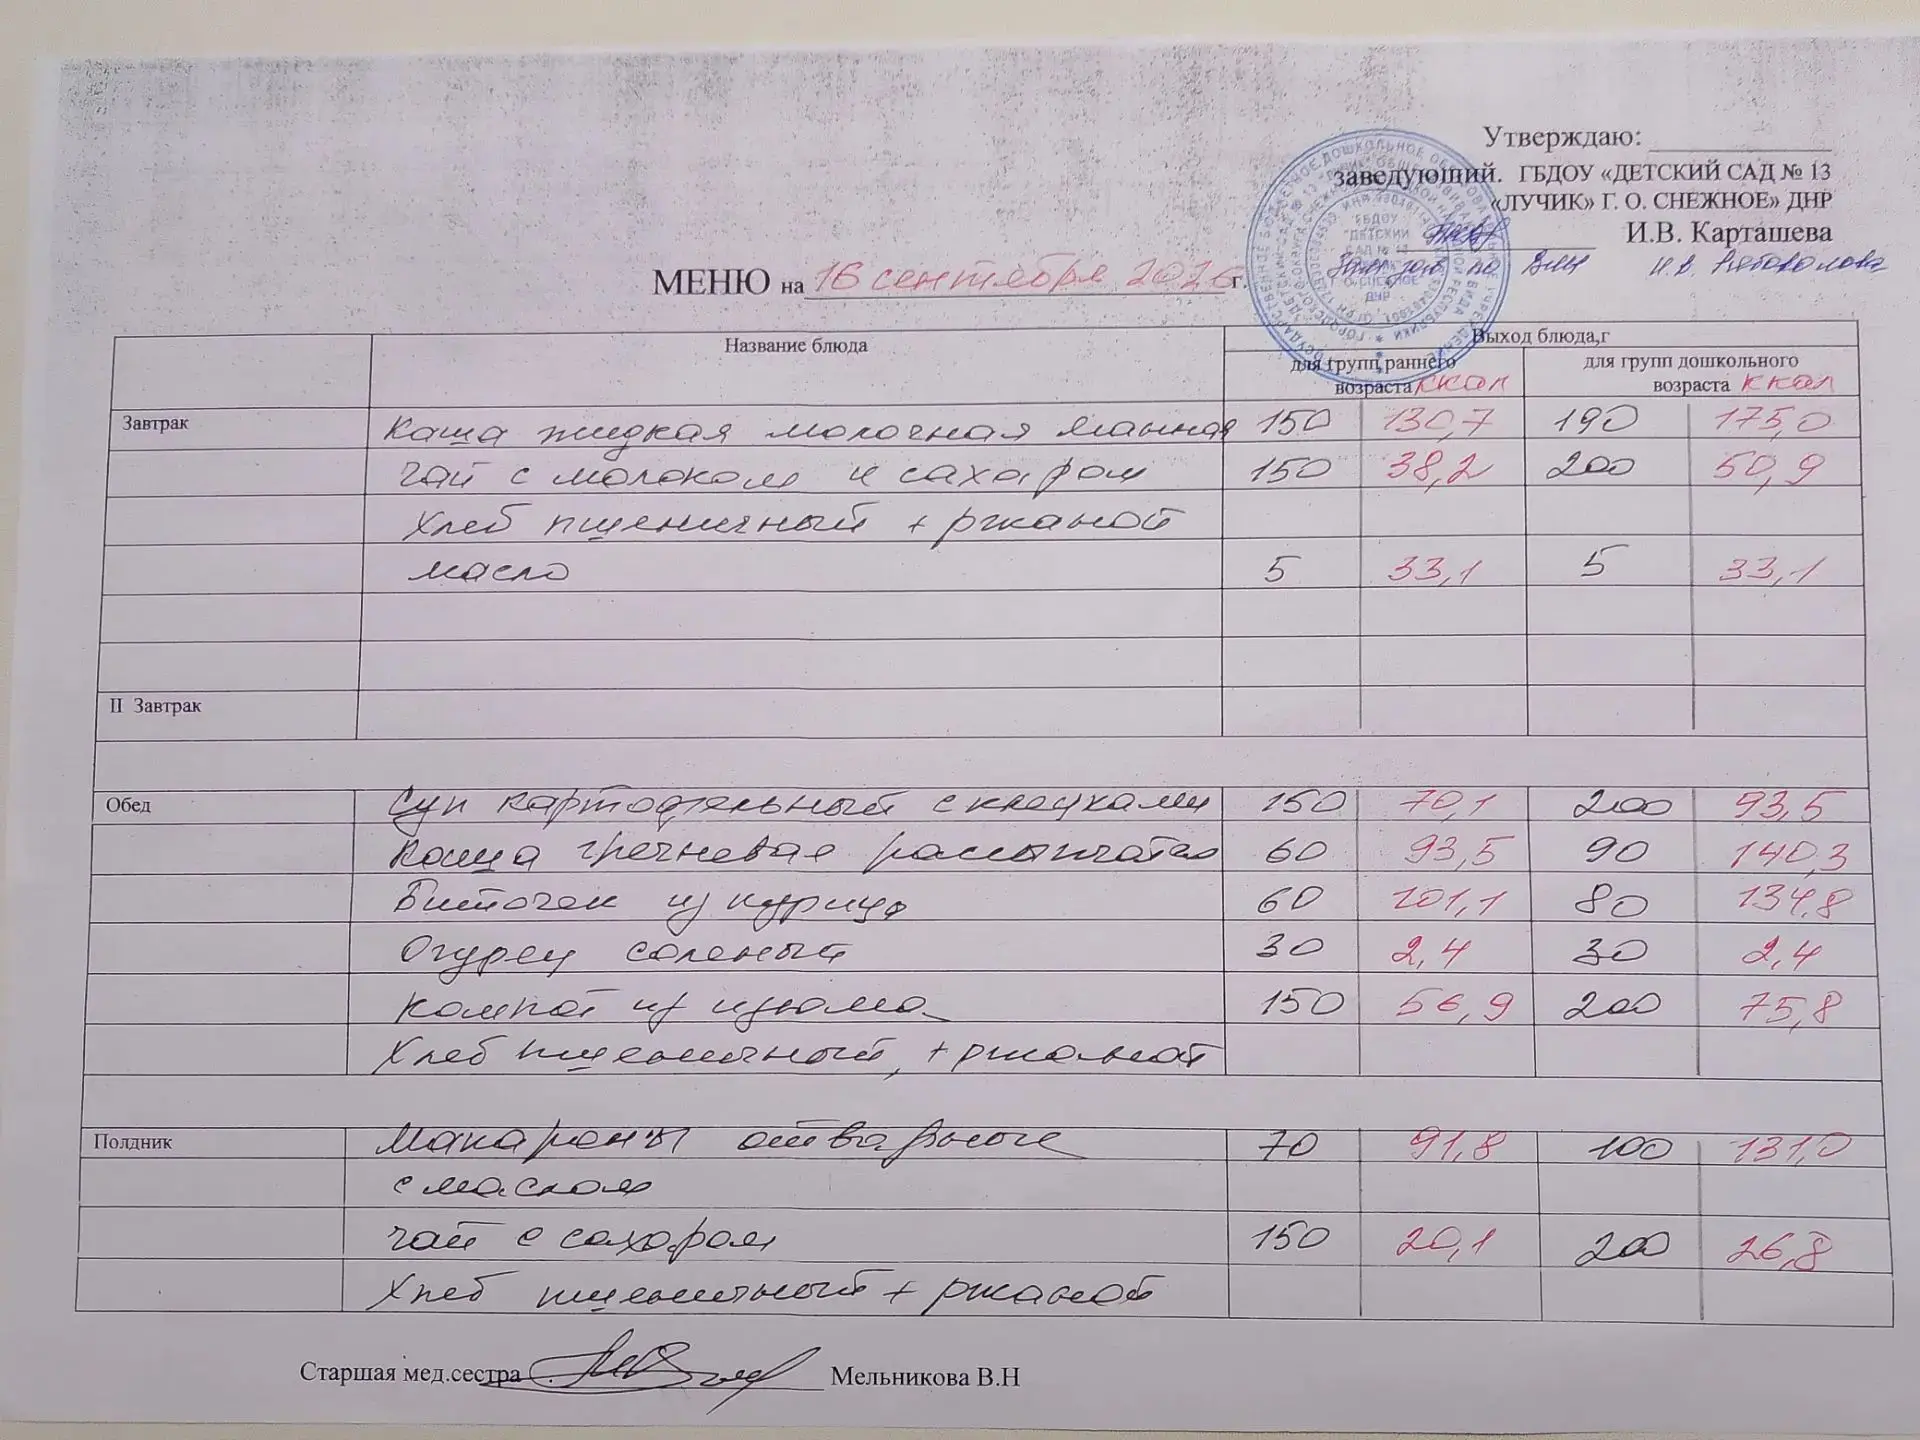 Утверждаю:
заведующий. ГБДОУ «ДЕТСКИЙ САД № 13
«ЛУЧИК» Г. О. СНЕЖНОЕ» ДНР
И.В. Карташева
МЕНЮ на 16 сентября 2026 г.
Название блюда Выход блюда,г
для групп раннего возраста ккал для групп дошкольного возраста ккал
Завтрак Каша жидкая молочная манная 150 130,7 190 175,0
чай с молоком и сахаром 150 38,2 200 50,9
Хлеб пшеничный + ржаной
масло 5 33,1 5 33,1
II Завтрак
Обед Суп картофельный с клецками 150 70,1 200 93,5
Каша гречневая рассыпчатая 60 93,5 90 140,3
Биточек из курицы 60 101,1 80 134,8
Огурец соленый 30 2,4 30 2,4
Компот из изюма 150 56,9 200 75,8
Хлеб пшеничный, + ржаной
Полдник Макароны отварные 70 91,8 100 131,0
с маслом
чай с сахаром 150 20,1 200 26,8
Хлеб пшеничный + ржаной
Старшая мед.сестра Мельникова В.Н